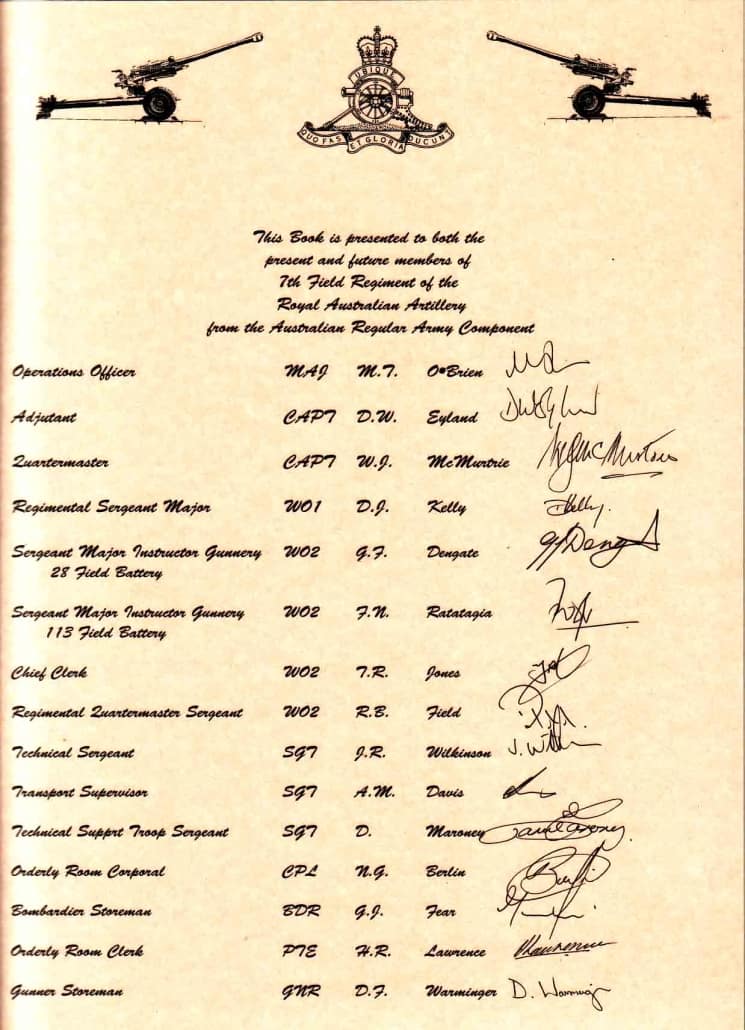 UBIQUE
QUO FAS ET GLORIA DUCUNT
This Book is presented to both the
present and future members of
7th Field Regiment of the
Royal Australian Artillery
from the Australian Regular Army Component
Operations Officer MAJ M.T. O•Brien
Adjutant CAPT D.W. Eyland
Quartermaster CAPT W.J. McMurtrie W J McMurtrie
Regimental Sergeant Major WO1 D.J. Kelly DKelly.
Sergeant Major Instructor Gunnery WO2 G.F. Dengate
28 Field Battery
Sergeant Major Instructor Gunnery WO2 F.N. Ratatagia
113 Field Battery
Chief Clerk WO2 T.R. Jones
Regimental Quartermaster Sergeant WO2 R.B. Field
Technical Sergeant SGT J.R. Wilkinson
Transport Supervisor SGT A.M. Davis
Technical Supprt Troop Sergeant SGT D. Maroney
Orderly Room Corporal CPL N.G. Berlin
Bombardier Storeman BDR G.J. Fear
Orderly Room Clerk PTE H.R. Lawrence HLawrence
Gunner Storeman GNR D.F. Warminger